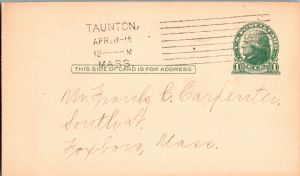 TAUNTON,
APR 8-15
12 — M
MASS.
THIS SIDE OF CARD IS FOR ADDRESS
1 1
Mr. Frank C. Carpenter
South St.
Foxboro, Mass.